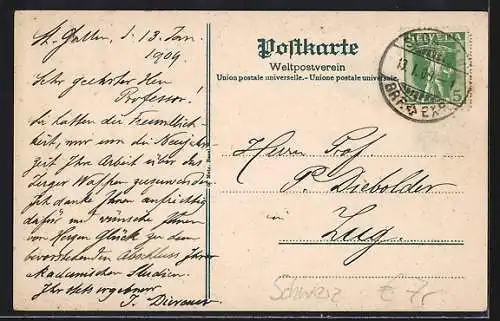 St. Gallen, d. 13. Jan.
1909.
Sehr geehrter Herr
Professor!
Sie hatten die Freundlich-
keit, mir um die Neujahrs-
zeit Ihre Arbeit über das
Zuger Wappen zuzuwenden.
Ich danke Ihnen aufrichtig
dafür und wünsche Ihnen
von Herzen Glück zu dem
bevorstehenden Abschluss Ihrer
akademischen Studien.
Ihr stets ergebener
J. Dierauer
Postkarte
Weltpostverein
Union postale universelle. - Unione postale universale
HELVETIA
5
13.I.09
BRF. EXP.
Herrn Prof.
P. Diebolder
in
Zug.
Schweiz